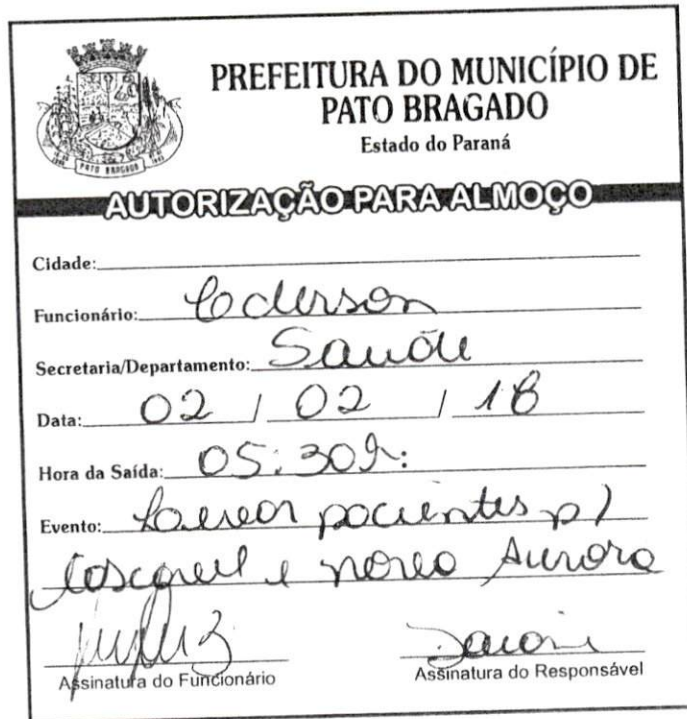 PREFEITURA DO MUNICÍPIO DE
PATO BRAGADO
Estado do Paraná
PATO BRAGADO
AUTORIZAÇÃO PARA ALMOÇO
Cidade:
Funcionário: Ederson
Secretaria/Departamento: Saúde
Data: 02 / 02 / 18
Hora da Saída: 05:30h:
Evento: Levar pacientes p/
Cascavel e nova Aurora
Assinatura do Funcionário Assinatura do Responsável